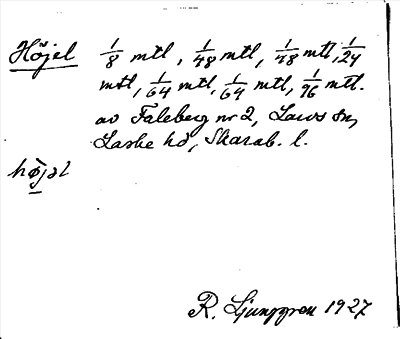 Höjel 1/8 mtl, 1/48 mtl, 1/48 mtl, 1/24
mtl, 1/64 mtl, 1/64 mtl, 1/96 mtl.
av Faleberg nr 2, Lavs sn,
Laske hd, Skarab. l.
höjəl
R. Ljunggren 1927